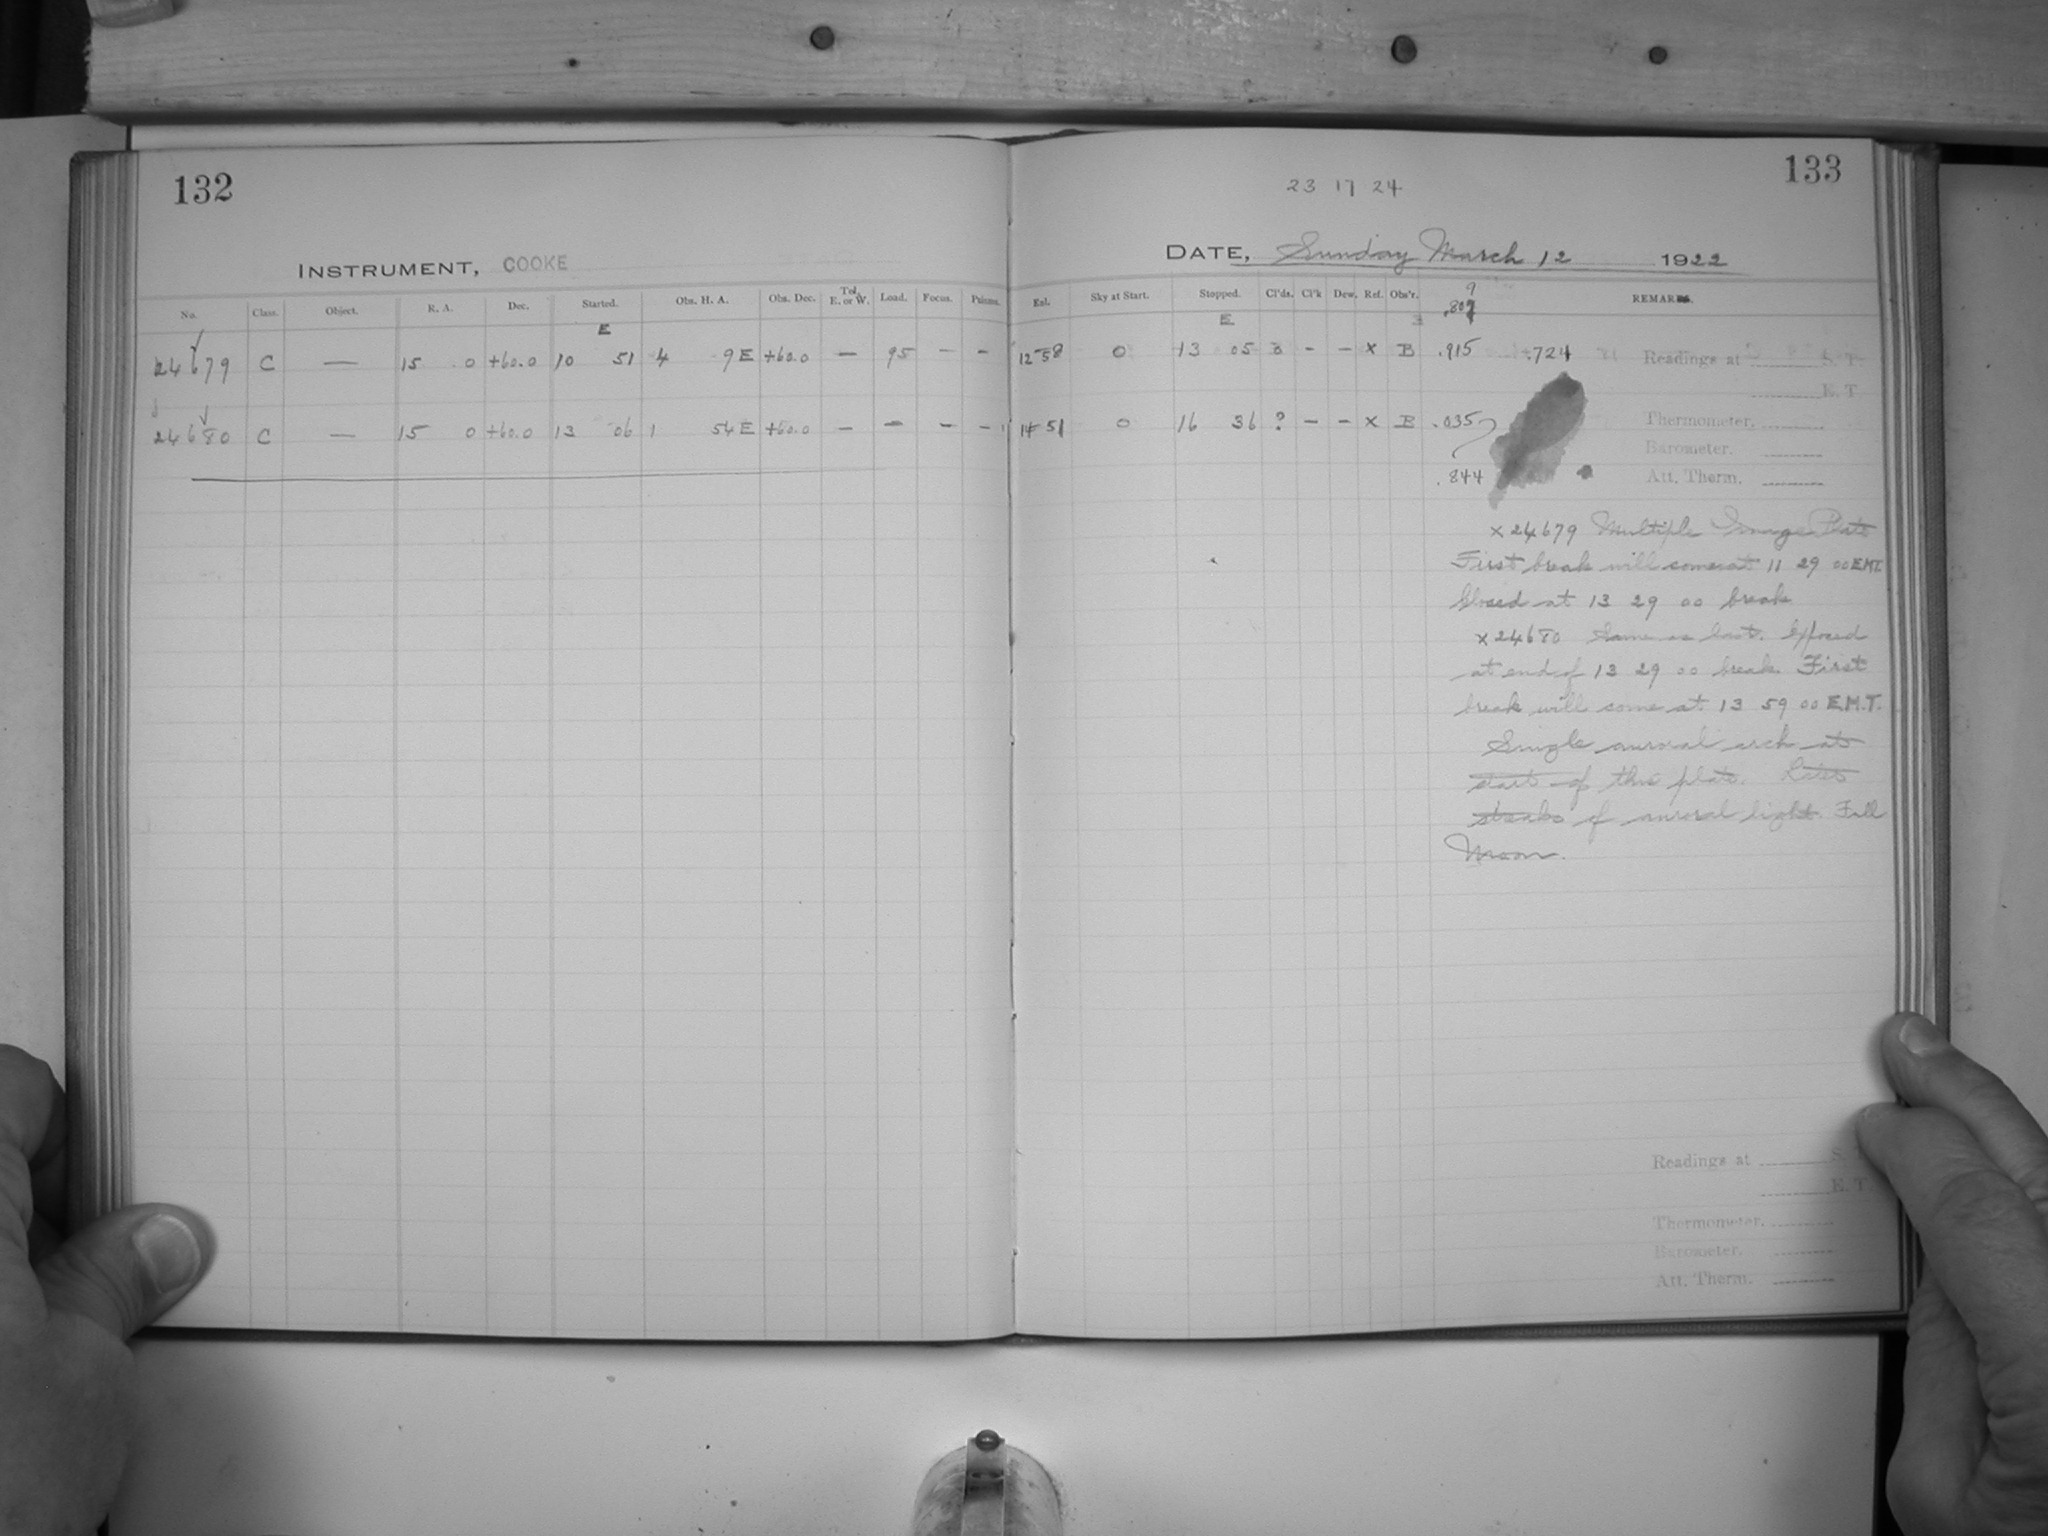 132
INSTRUMENT, COOKE
No. Class. Object. R. A. Dec. Started. Obs. H. A. Obs. Dec. Tel. E. or W. Load. Focus. Prisms.
E
24679 C — 15 0 +60.0 10 51 4 9 E +60.0 — 95 — —
24680 C — 15 0 +60.0 13 06 1 54 E +60.0 — — — —
133
23 17 24
DATE, Sunday March 12 1922
Exl. Sky at Start. Stopped. Cl'ds. Cl'k Dew. Ref. Obs'r. REMARKS.
E
12 58 0 13 05 — — x B .915 .724 Readings at S. T.
E. T
14 51 0 16 36 ? — — x B .035 Thermometer.
Barometer.
.844 Att. Therm.
x 24679 Multiple Image Plate
First break will come at 11 29 00 E.M.T.
Closed at 13 29 00 break
x 24680 Same as last. Exposed
at end of 13 29 00 break First
break will come at 13 59 00 E.M.T.
Single auroral arch at
start of this plate. Later
streaks of auroral light. Full
Moon.
Readings at S.
E. T.
Thermometer.
Barometer.
Att. Therm.